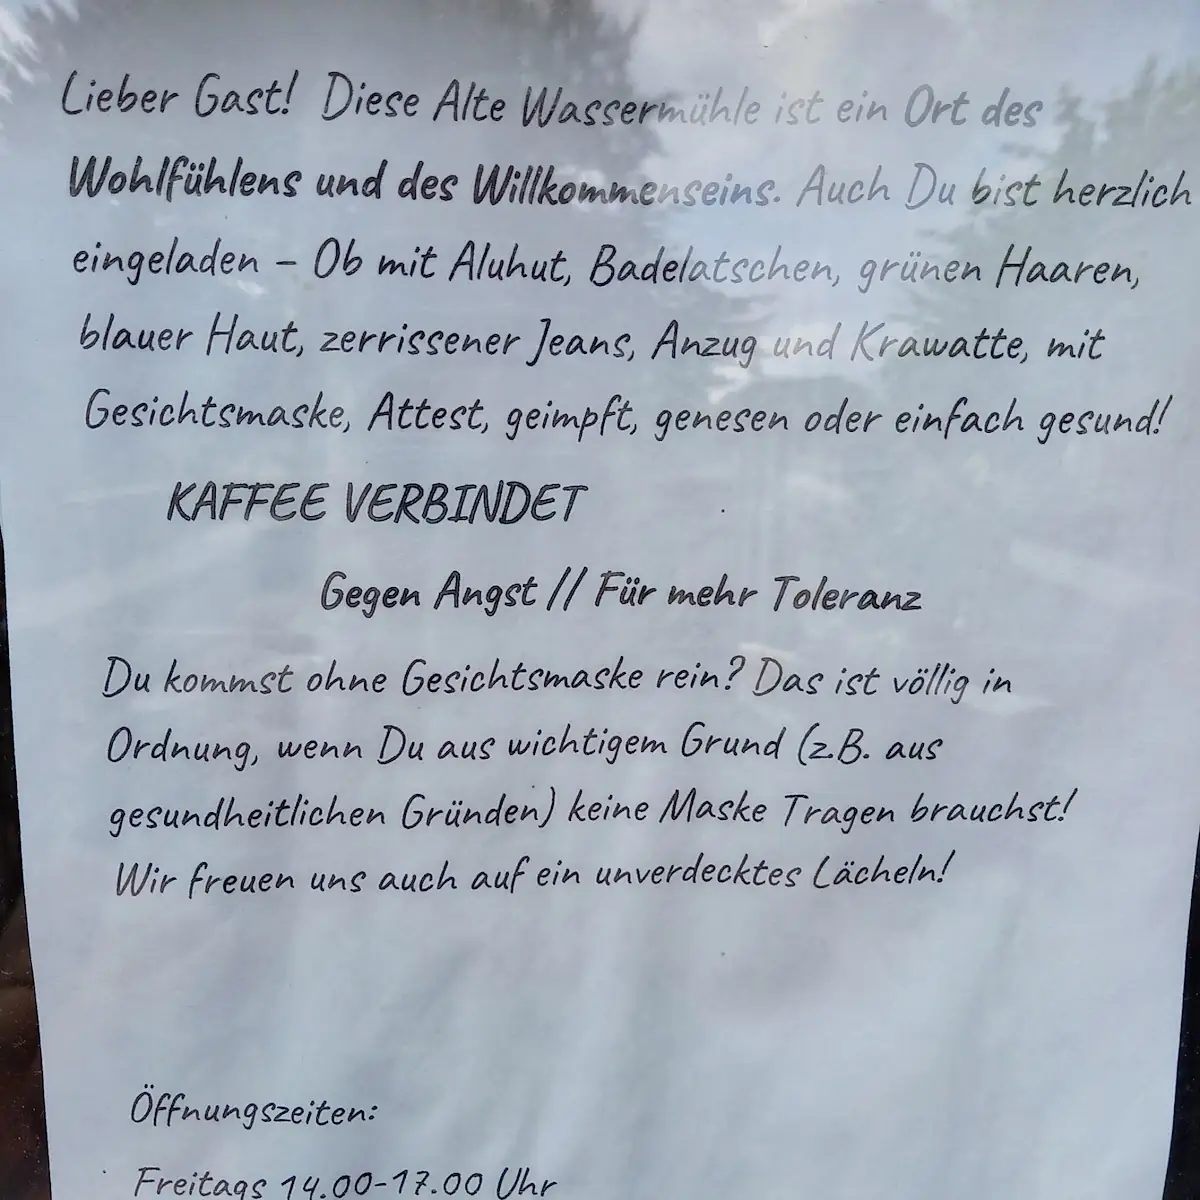 Lieber Gast! Diese Alte Wassermühle ist ein Ort des
Wohlfühlens und des Willkommenseins. Auch Du bist herzlich
eingeladen – Ob mit Aluhut, Badelatschen, grünen Haaren,
blauer Haut, zerrissener Jeans, Anzug und Krawatte, mit
Gesichtsmaske, Attest, geimpft, genesen oder einfach gesund!
KAFFEE VERBINDET
Gegen Angst // Für mehr Toleranz
Du kommst ohne Gesichtsmaske rein? Das ist völlig in
Ordnung, wenn Du aus wichtigem Grund (z.B. aus
gesundheitlichen Gründen) keine Maske Tragen brauchst!
Wir freuen uns auch auf ein unverdecktes Lächeln!
Öffnungszeiten:
Freitags 14.00-17.00 Uhr